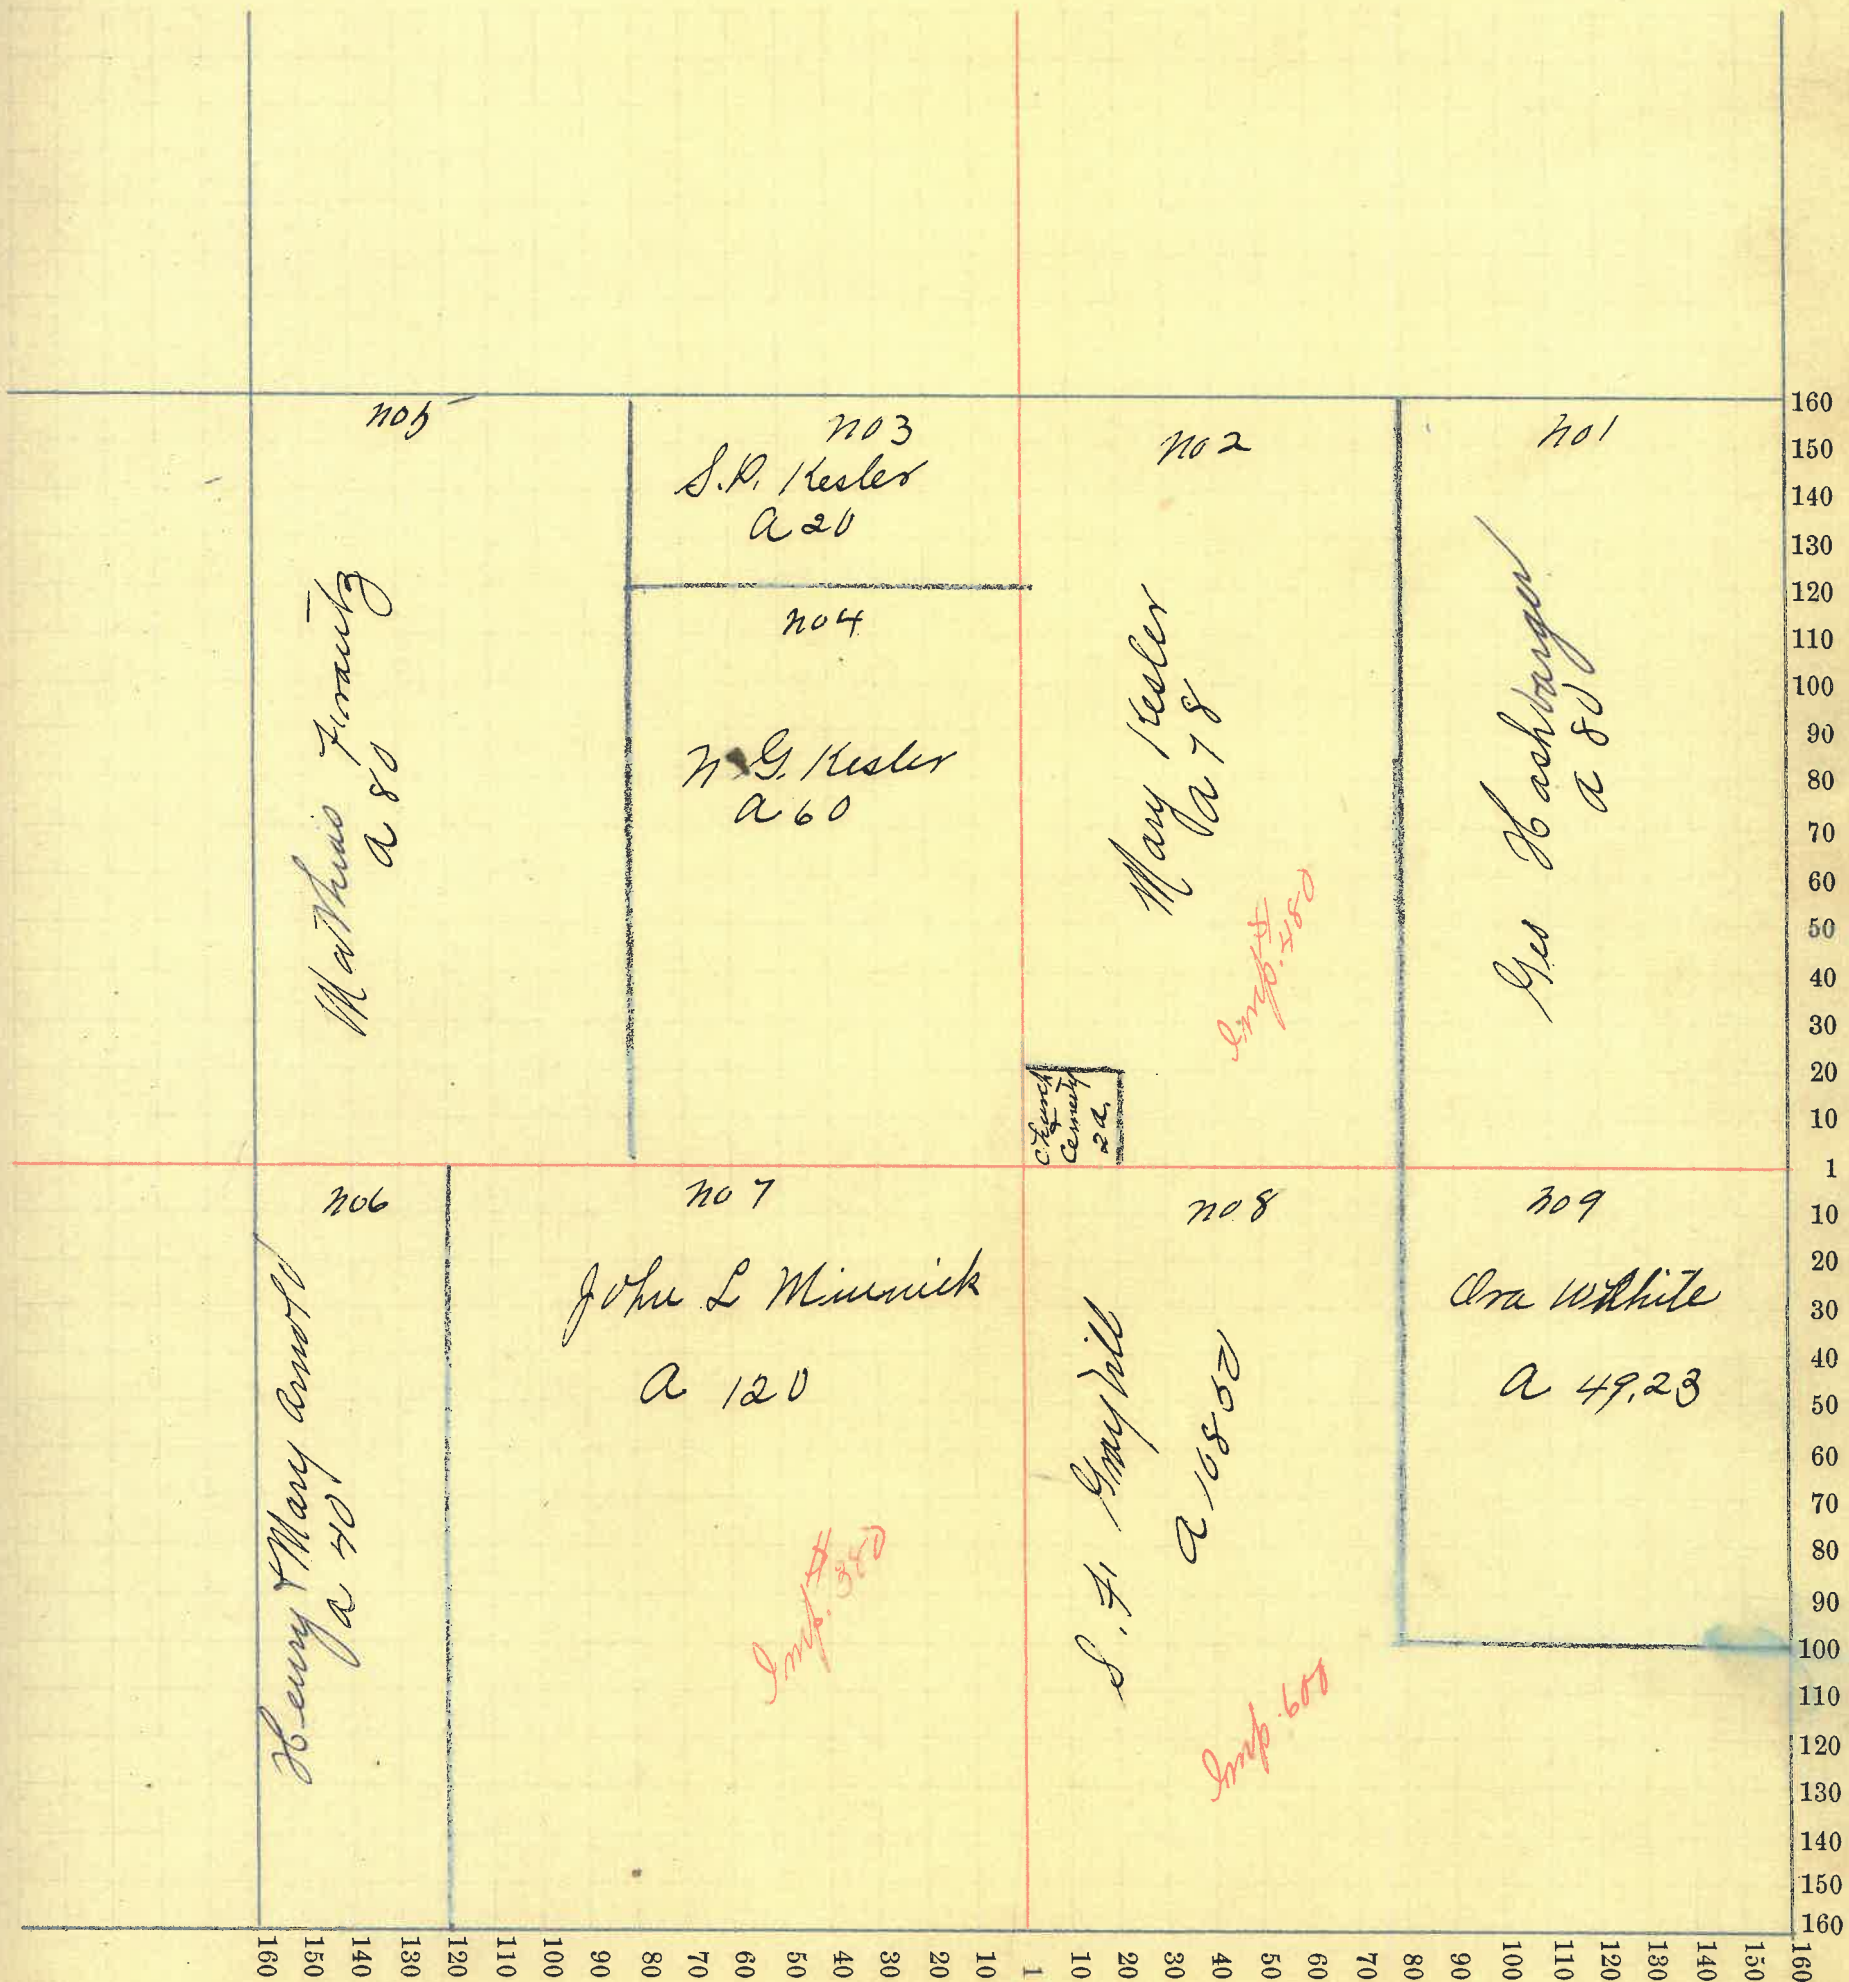 no 5
Mathias Frantz
a 80
no 3
S.D. Kesler
a 20
no 4
N G. Kesler
a 60
no 2
Mary Kesler
a 78
Imp. $480
Church
&
Cemety
2 a.
no 1
Geo Hashbarger
a 80
no 6
Henry & Mary Arnold
a 40
no 7
John L Minnick
a 120
Imp. $350
no 8
S. F. Graybill
Imp. 600
no 9
Ora White
a 49.23
160
150
140
130
120
110
100
90
80
70
60
50
40
30
20
10
1
10
20
30
40
50
60
70
80
90
100
110
120
130
140
150
160
160 150 140 130 120 110 100 90 80 70 60 50 40 30 20 10 1 10 20 30 40 50 60 70 80 90 100 110 120 130 140 150 160